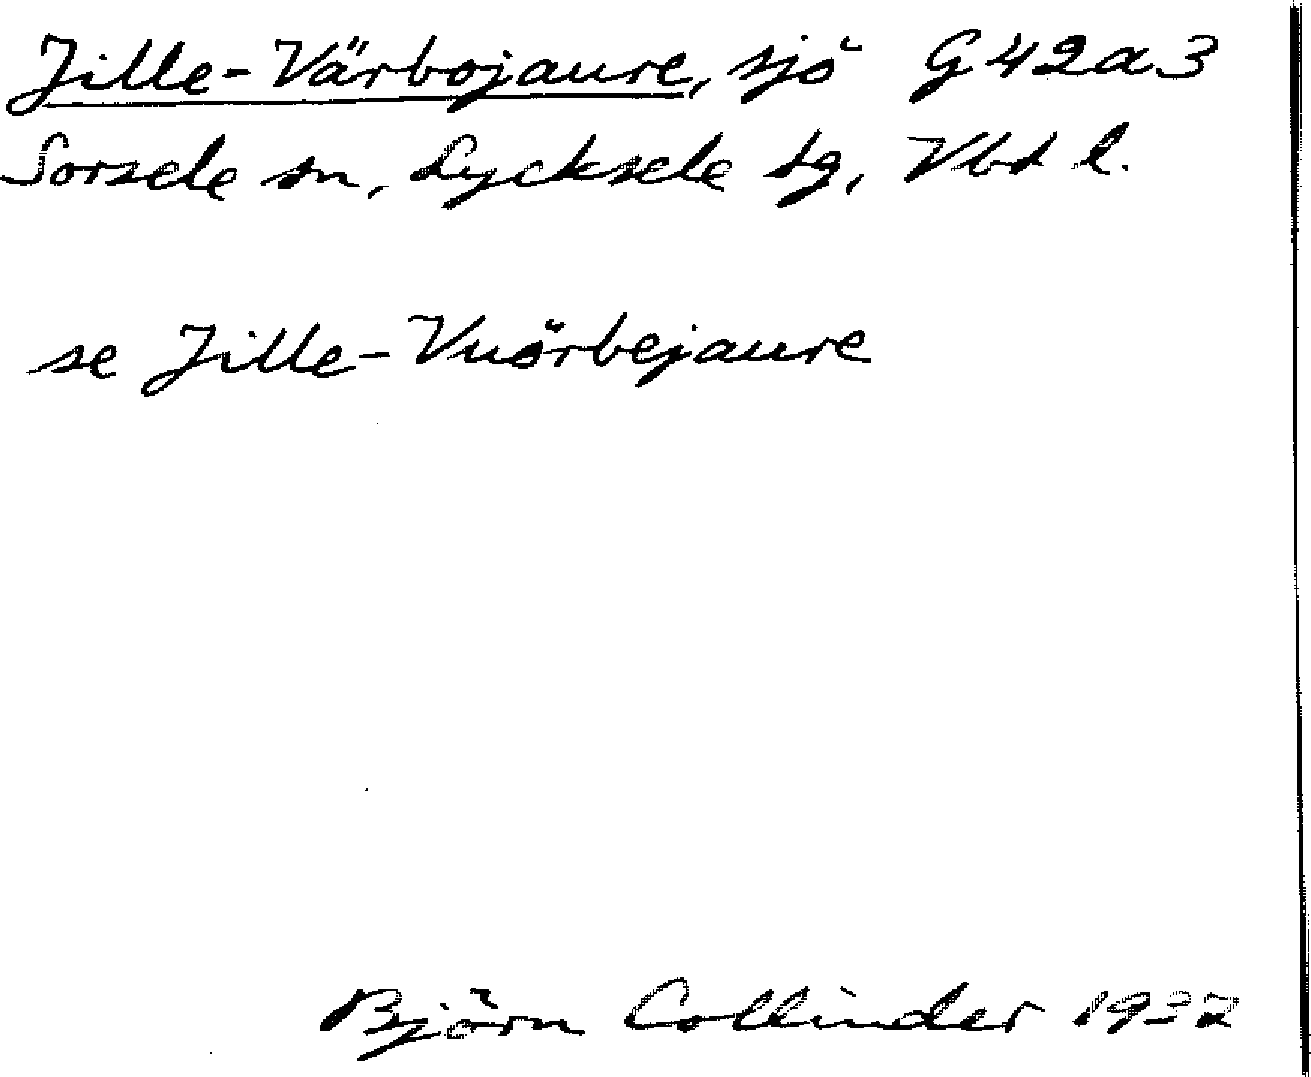 Jille-Värbojaure, sjö G42a3
Sorsele sn, Lycksele lg, Vbt l.
se Jille-Vuörbejaure
Björn Collinder 1932